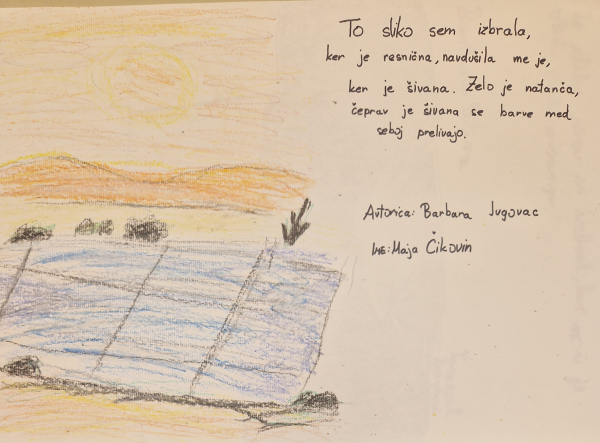 To sliko sem izbrala,
ker je resnična, navdušila me je,
ker je šivana. Zelo je natanča,
čeprav je šivana se barve med
seboj prelivajo.
Avtorica: Barbara Jugovac
IME: Maja Čikovin